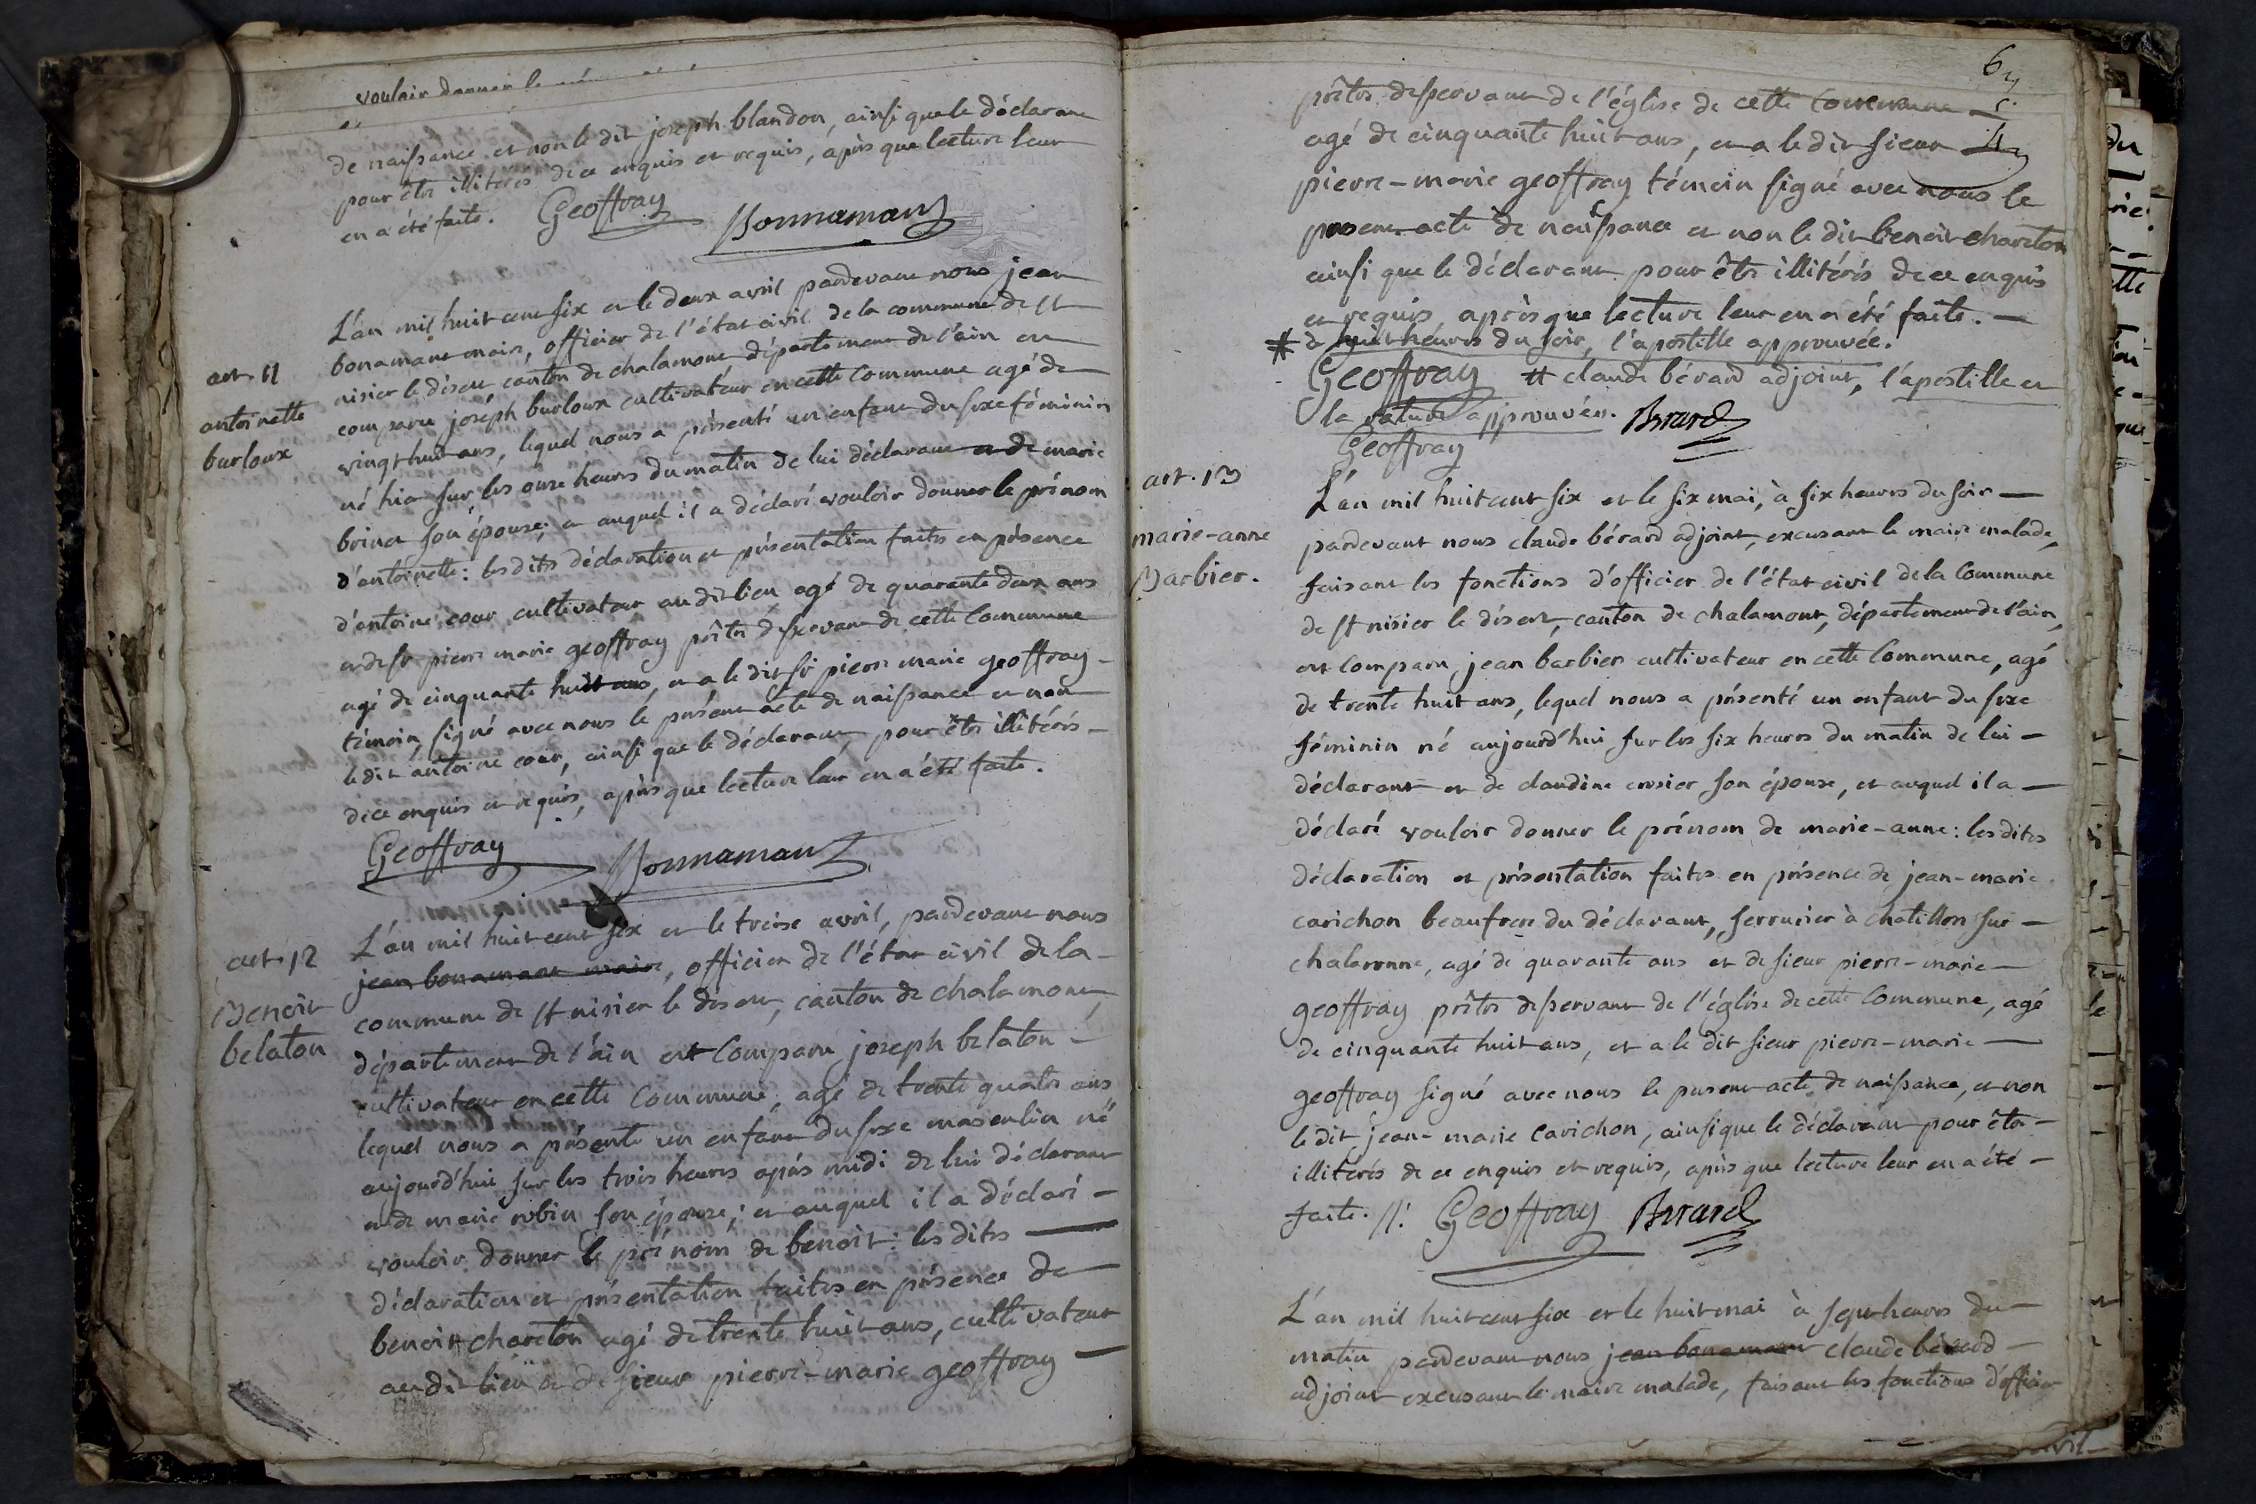 vouloir donner le
de naissance et non le dit joseph blandon, ainsi que le déclarant
pour être illiterés de ce enquis et requis, après que lecture leur
en a été faite. Geoffray Bonnamant
art. 11
antoinette
burloux
L'an mil huit cent six et le deux avril pardevant nous jean
bonamant maire, officier de l'état civil de la commune de st
nisier le désert canton de chalamont département de l'ain est
comparu joséph burloux cultivateur en cette Commune agé de
vingt huit ans, lequel nous a présenté un enfant du sexe féminin
né hier sur les onze heures du matin de lui déclarant et de marie
brivet son épouse; et auquel il a déclaré vouloir donner le prénom
d'antoinette: les dites déclaration et présentation faites en présence
d'antoine cour cultivateur au dit lieu agé de quarante deux ans
et de sr pierre marie geoffray prêtre desservant de cette Commune
agé de cinquante huit ans, et a le dit sr pierre marie geoffray
témoin, signé avec nous le présent acte de naissance et non
le dit antoine cour, ainsi que le déclarant, pour être illitérés
de ce enquis et requis, après que lecture leur en a été faite.
Geoffray Bonnamant
art. 12
Benoit
belaton
L'an mil huit cent six et le treise avril, pardevant nous
jean bonamant maire, officier de l'état civil de la
commune de st nisier le desert, canton de chalamont,
département de l'ain est Comparu joseph belaton
cultivateur en cette Commune, agé de trente quatre ans
lequel nous a présenté un enfant du sexe masculin né
aujourd'hui sur les trois heures après midi de lui déclarant
et de marie robin son épouse; et auquel il a déclaré
vouloir donner le prénom de benoit: les dites
déclaration et présentation faites en présence de
benoit chareton agé de trente huit ans, cultivateur
au dit lieu et de sieur pierre-marie geoffray
6
prêtre desservant de l'église de cette Commune
agé de cinquante huit ans, et a le dit sieur
pierre-marie geoffray témoin signé avec nous le
présent acte de naissance et non le dit benoit chareton
ainsi que le déclarant pour être illitérés de ce enquis
et requis, après que lecture leur en a été faite.
# à huit heures du soir, l'apostille approuvée.
Geoffray # claude bérard adjoint, l'apostille et
la rature approuvées. Brard
Geoffray
art. 13
marie-anne
Barbier.
L'an mil huit cent six et le six mai, à six heures du soir
pardevant nous claude bérard adjoint, excusant le maire malade,
faisant les fonctions d'officier de l'état civil de la Commune
de st nisier le désert, canton de chalamont, département de l'ain,
est Comparu jean barbier cultivateur en cette Commune, agé
de trente huit ans, lequel nous a présenté un enfant du sexe
féminin né aujourd'hui sur les six heures du matin de lui
déclarant et de claudine crosier son épouse, et auquel il a
déclaré vouloir donner le prénom de marie-anne: les dites
déclaration et présentation faites en présence de jean-marie
carichon beaufrere du déclarant, serrurier à chatillon sur
chalaronne, agé de quarante ans et de sieur pierre-marie
geoffray prêtre desservant de l'église de cette Commune, agé
de cinquante huit ans, et a le dit sieur pierre-marie
geoffray signé avec nous le present acte de naissance, et non
le dit jean-marie Carichon, ainsi que le déclarant pour être
illiterés de ce enquis et requis, après que lecture leur en a été
faite. //. Geoffray Brard
L'an mil huit cent six et le huit mai à sept heures du
matin pardevant nous jean bonamant claude bérard
adjoint excusant le maire malade, faisant les fonctions d'officier